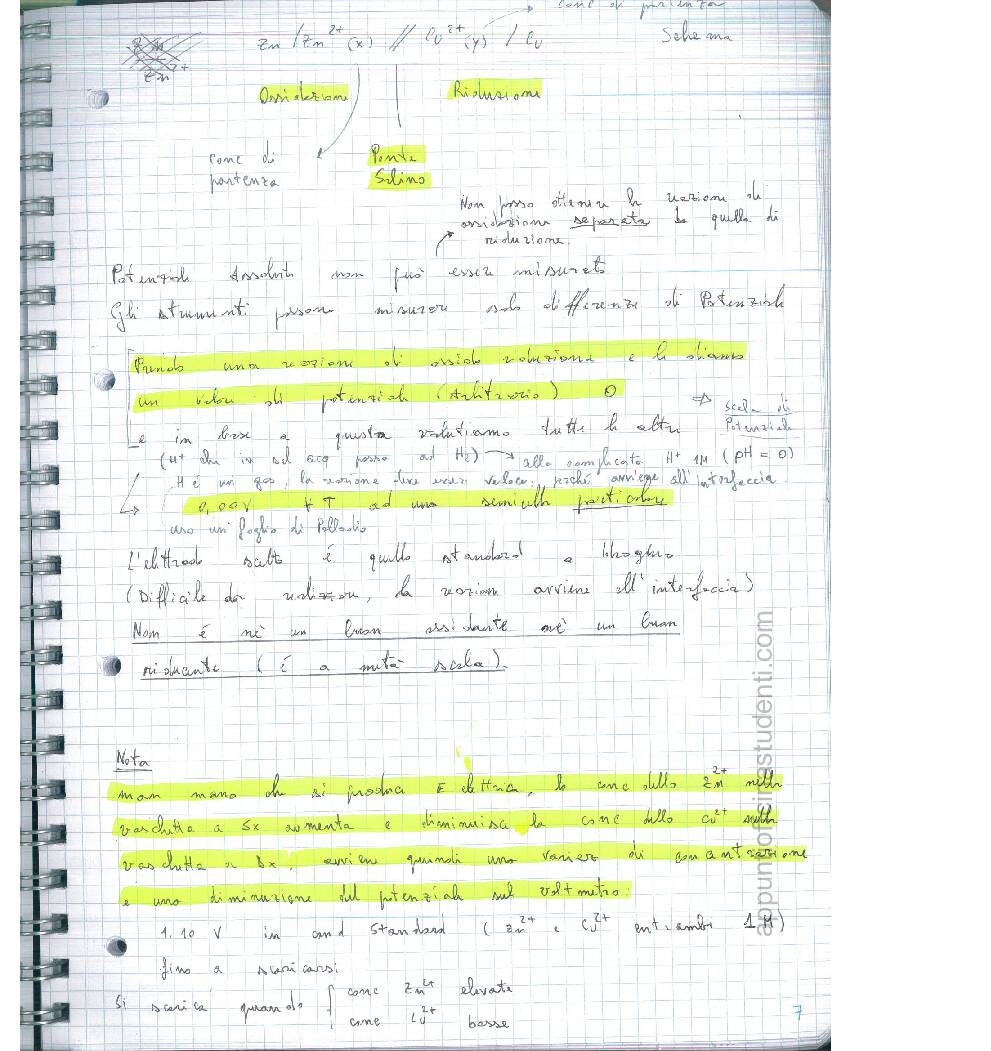 conc di partenza
Zn / Zn²⁺ (x) // Cu²⁺ (y) / Cu Schema
Zn²⁺
Ossidazione Riduzione
conc di partenza
Ponte Salino
Non posso ottenere la reazione di
ossidazione separata da quella di
riduzione.
Potenziale Assoluto non può essere misurato
Gli strumenti possono misurare solo differenze di Potenziale
Prendo una reazione di ossido riduzione e le diamo
un valore di potenziale (Arbitrario) 0
⇒ scala di Potenziale
e in base a questa valutiamo tutte le altre
(H⁺ che in sol acq passa ad H₂) → allo complicato H⁺ 1M (pH = 0)
H é un gas, la reazione deve essere veloce, perché avviene all'interfaccia
0,00V ∀ T ad una semicella particolare
uso un foglio di Palladio
L'elettrodo scelto é quello standard a Idrogeno
(Difficile da realizzare, la reazione avviene all'interfaccia)
Non é né un buon ossidante né un buon
riducente (é a metà scala).
Nota
man mano che si produce E elettrica, la conc dello Zn²⁺ nella
vaschetta a Sx aumenta e diminuisce la conc dello Cu²⁺ nella
vaschetta a Dx, avviene quindi una variaz di concentrazione
e una diminuzione del potenziale sul voltmetro.
1.10 V in cond Standard (Zn²⁺ e Cu²⁺ entrambi 1M)
fino a scaricarsi
Si scarica quando { conc Zn²⁺ elevate
conc Cu²⁺ basse
7
appuntiofficinastudenti.com